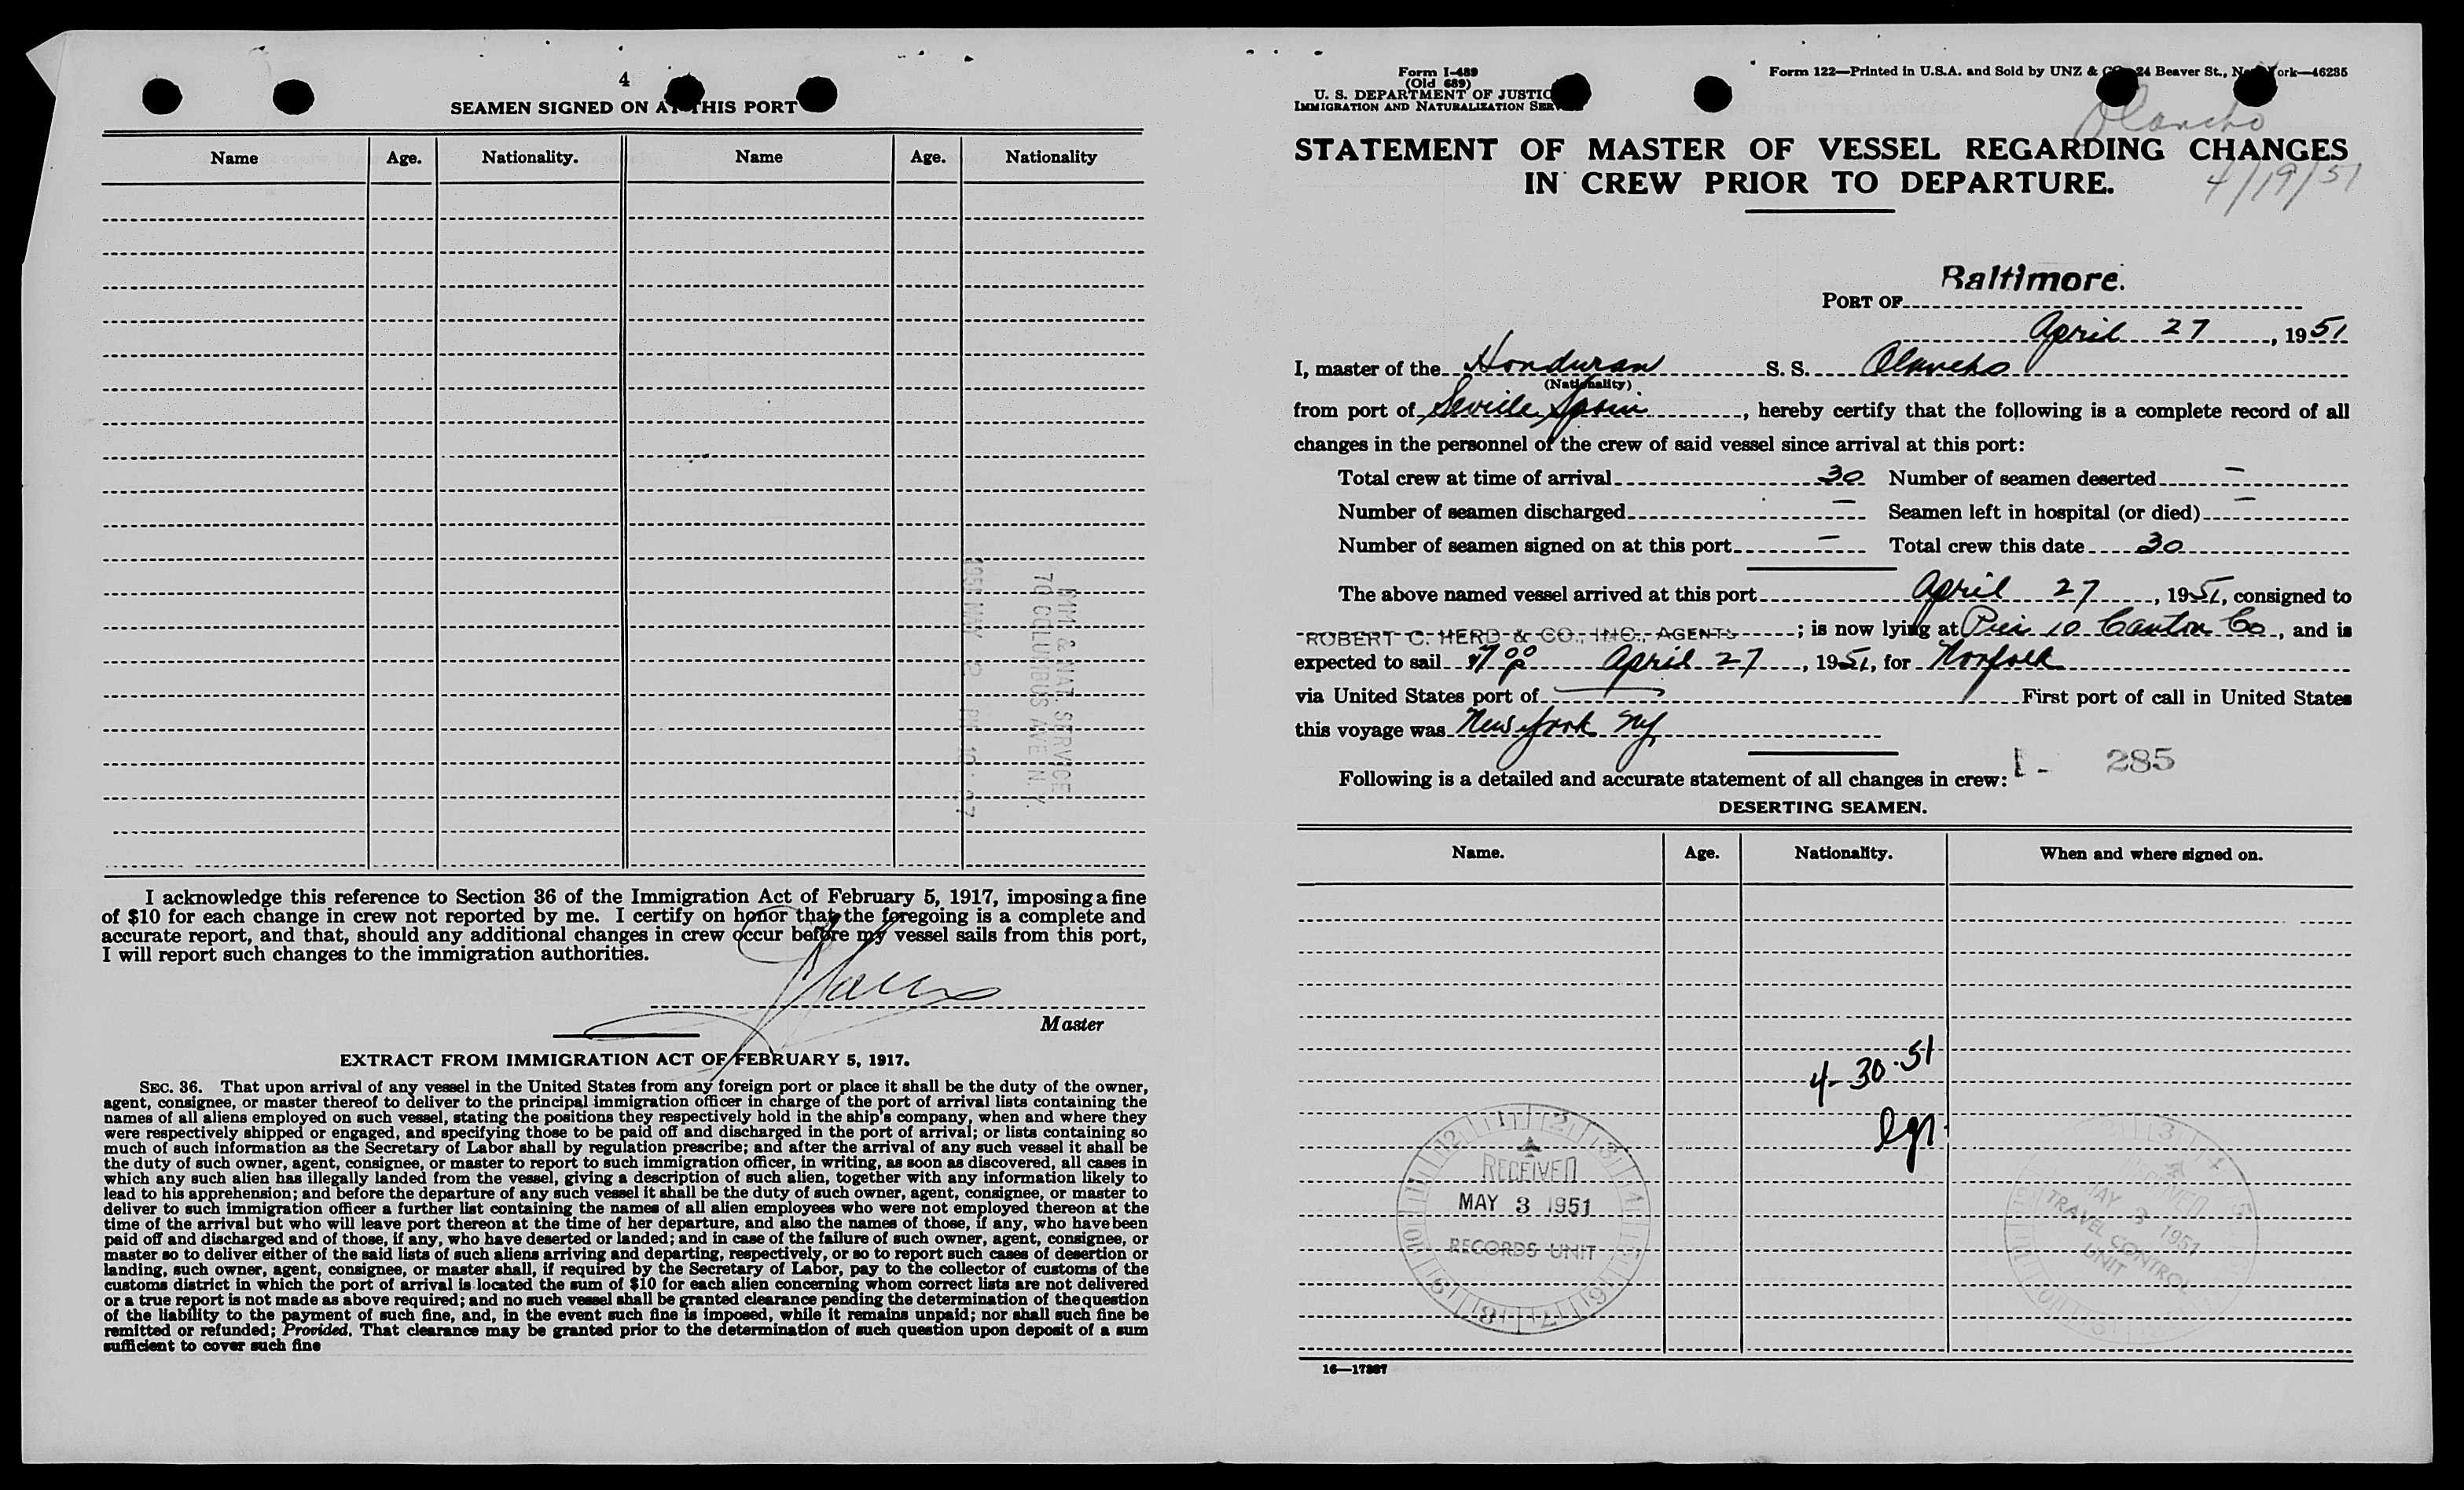 4
SEAMEN SIGNED ON AT THIS PORT
Name Age. Nationality. Name Age. Nationality
IMM & NAT. SERVICE
70 COLUMBUS AVE N.Y.
1951 MAY 2 PM 10:27
I acknowledge this reference to Section 36 of the Immigration Act of February 5, 1917, imposing a fine
of $10 for each change in crew not reported by me. I certify on honor that the foregoing is a complete and
accurate report, and that, should any additional changes in crew occur before my vessel sails from this port,
I will report such changes to the immigration authorities.
Master
EXTRACT FROM IMMIGRATION ACT OF FEBRUARY 5, 1917.
SEC. 36. That upon arrival of any vessel in the United States from any foreign port or place it shall be the duty of the owner,
agent, consignee, or master thereof to deliver to the principal immigration officer in charge of the port of arrival lists containing the
names of all aliens employed on such vessel, stating the positions they respectively hold in the ship's company, when and where they
were respectively shipped or engaged, and specifying those to be paid off and discharged in the port of arrival; or lists containing so
much of such information as the Secretary of Labor shall by regulation prescribe; and after the arrival of any such vessel it shall be
the duty of such owner, agent, consignee, or master to report to such immigration officer, in writing, as soon as discovered, all cases in
which any such alien has illegally landed from the vessel, giving a description of such alien, together with any information likely to
lead to his apprehension; and before the departure of any such vessel it shall be the duty of such owner, agent, consignee, or master to
deliver to such immigration officer a further list containing the names of all alien employees who were not employed thereon at the
time of the arrival but who will leave port thereon at the time of her departure, and also the names of those, if any, who have been
paid off and discharged and of those, if any, who have deserted or landed; and in case of the failure of such owner, agent, consignee, or
master so to deliver either of the said lists of such aliens arriving and departing, respectively, or so to report such cases of desertion or
landing, such owner, agent, consignee, or master shall, if required by the Secretary of Labor, pay to the collector of customs of the
customs district in which the port of arrival is located the sum of $10 for each alien concerning whom correct lists are not delivered
or a true report is not made as above required; and no such vessel shall be granted clearance pending the determination of the question
of the liability to the payment of such fine, and, in the event such fine is imposed, while it remains unpaid; nor shall such fine be
remitted or refunded; Provided, That clearance may be granted prior to the determination of such question upon deposit of a sum
sufficient to cover such fine
Form I-489
(Old 689)
U. S. DEPARTMENT OF JUSTICE
IMMIGRATION AND NATURALIZATION SERVICE
Form 122—Printed in U.S.A. and Sold by UNZ & CO., 24 Beaver St., New York—46235
Olancho
4/19/51
STATEMENT OF MASTER OF VESSEL REGARDING CHANGES
IN CREW PRIOR TO DEPARTURE.
PORT OF Baltimore.
April 27, 1951
I, master of the Honduran S. S. Olancho
(Nationality)
from port of Seville Spain, hereby certify that the following is a complete record of all
changes in the personnel of the crew of said vessel since arrival at this port:
Total crew at time of arrival 30 Number of seamen deserted —
Number of seamen discharged — Seamen left in hospital (or died) —
Number of seamen signed on at this port — Total crew this date 30
The above named vessel arrived at this port April 27, 1951, consigned to
ROBERT C. HERD & CO., INC., AGENTS; is now lying at Pier 10 Canton Co, and is
expected to sail 7 00 p April 27, 1951, for Norfolk
via United States port of — First port of call in United States
this voyage was New York NY
Following is a detailed and accurate statement of all changes in crew: 285
DESERTING SEAMEN.
Name. Age. Nationality. When and where signed on.
4-30-51
RECEIVED
MAY 3 1951
RECORDS UNIT
RECEIVED
MAY 3 1951
TRAVEL CONTROL
UNIT
16—17367